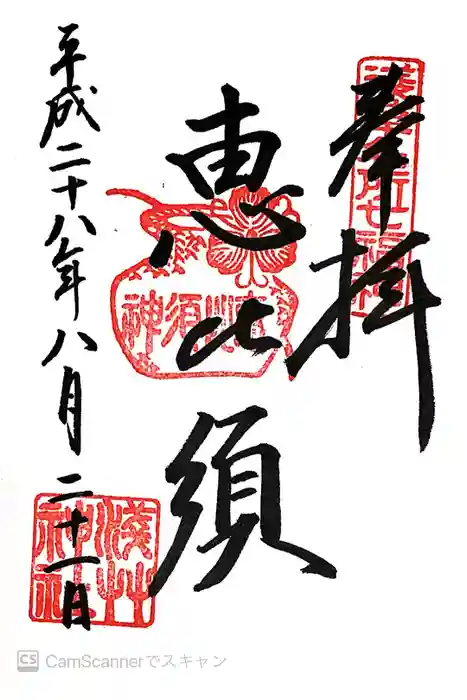 奉拝
恵比須
恵比須神
平成二十八年八月二十一日
浅草神社
CS CamScannerでスキャン